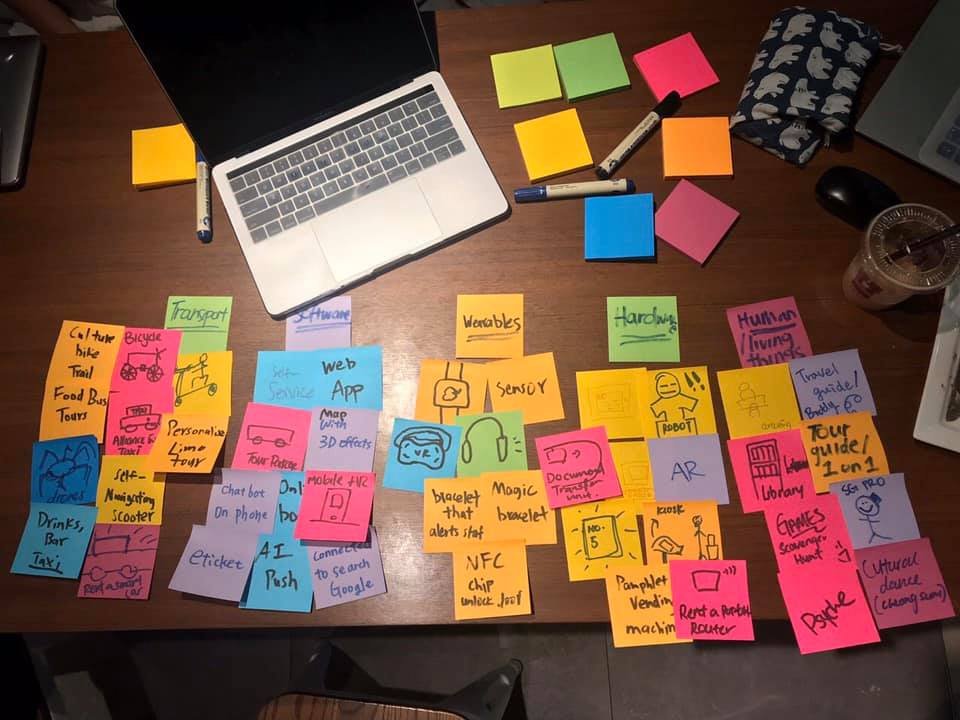 Transport
Culture
bike
Trail
Food Bus
Tours
Bicycle
TAXI
Alliance
Taxi
Personalise
Limo
tour
drones
Self-
Navigating
scooter
Drinks,
Bar
Taxi
Rent a smart
car
Software
Self-
Service
Web
App
Tour Package
Map
with
3D effects
Chatbot
On phone
mobile +VR
eticket
AI
Push
connected
to search
Google
Wearables
sensor
VR
bracelet
that
alerts stat
Magic
bracelet
NFC
chip
unlock
Hardware
ROBOT
Document
Transfer
unit.
AR
NO.
5
KIOSK
Pamphlet
Vending
machine
Rent a
Router
Human
/living
things
Travel
guide/
Buddy
Library
Tour
guide/
1 on 1
SG PRO
GAMES
Scavenger
Hunt
Psyche
Cultural
dance